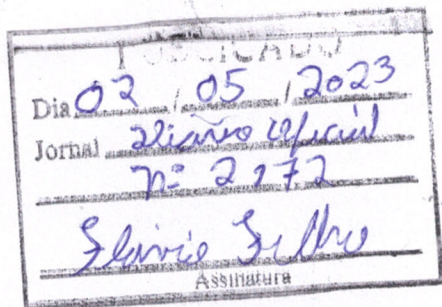 PUBLICADO
Dia 02 / 05 / 2023
Jornal Diário Oficial
nº 2172
Flávio Filho
Assinatura